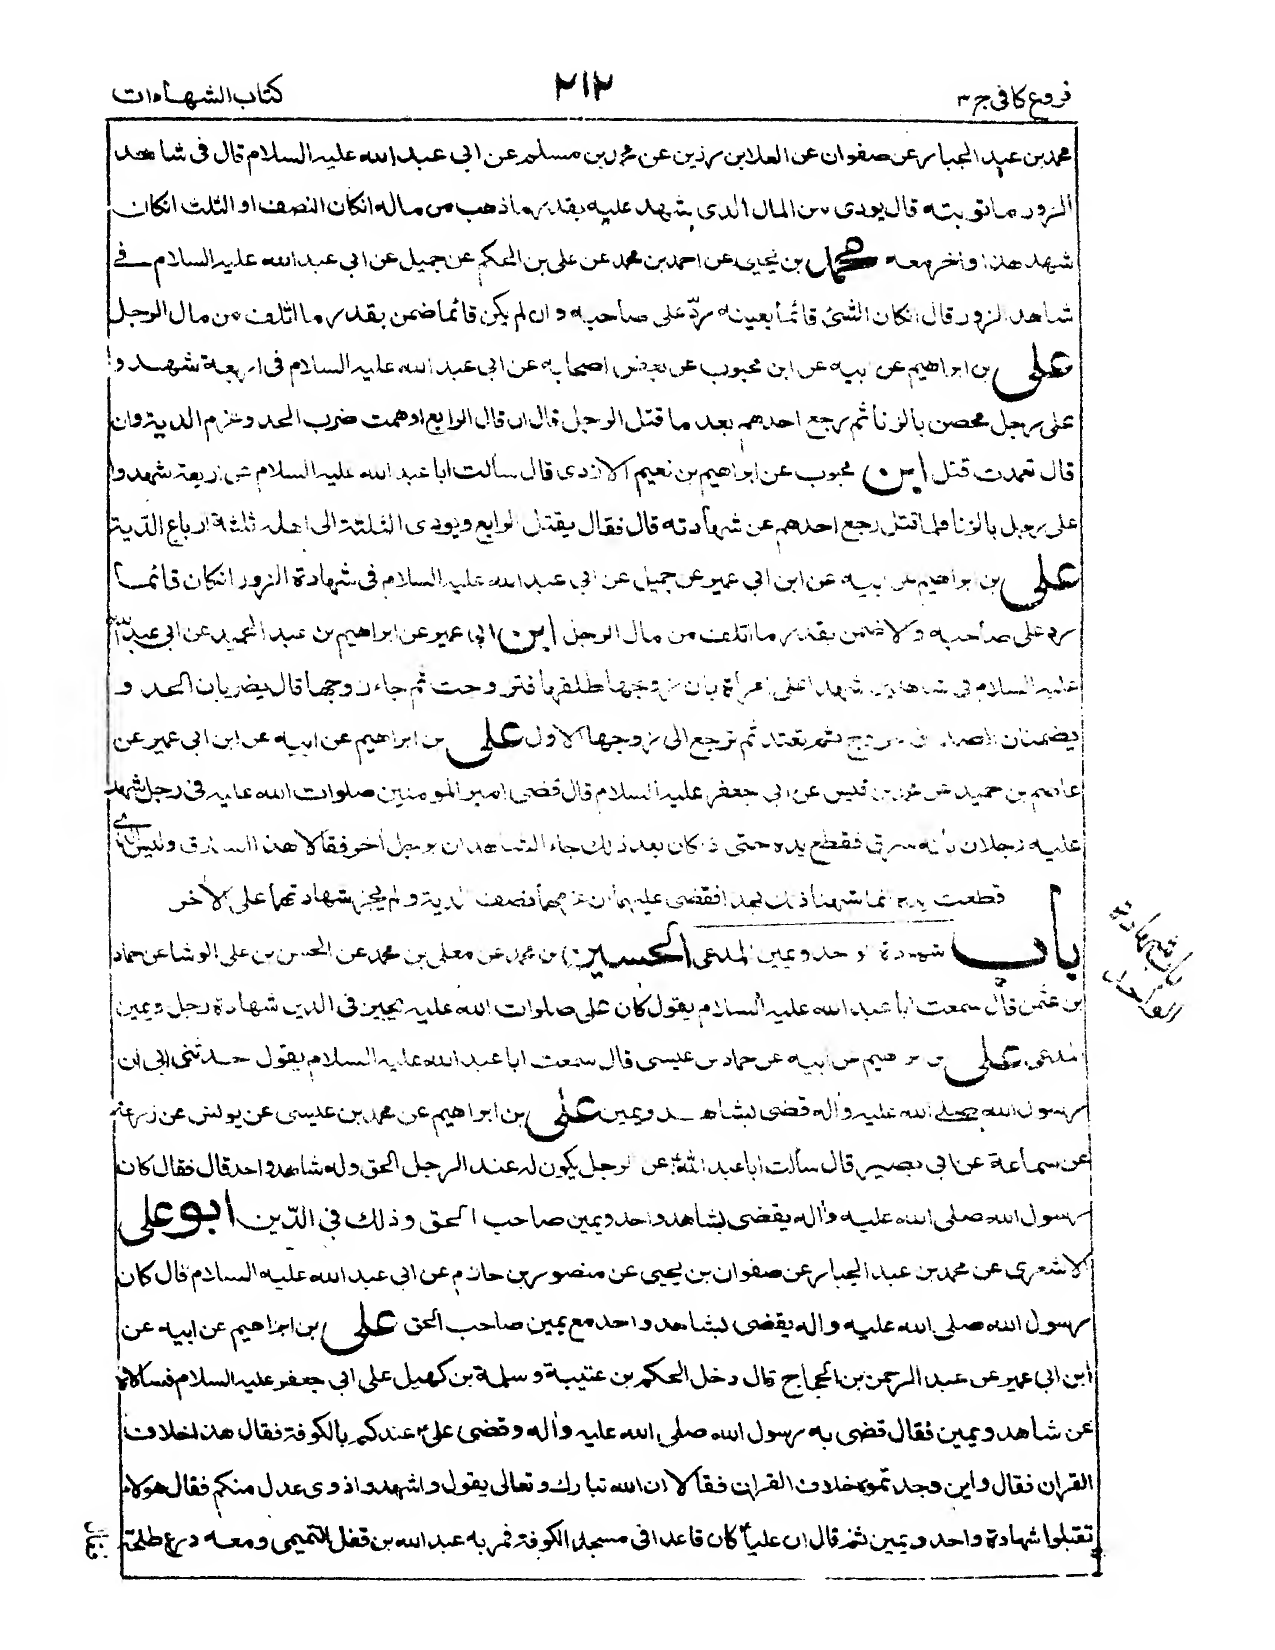 فروع کافی ج ۳
۲۱۲
کتاب الشهادات
محمد بن عبد الجبار عن صفوان عن العلا بن رزین عن محمد بن مسلم عن ابی عبد الله علیه السلام قال فی شاهد
الزور ما توبته قال یودی من المال الذی یشهد علیه بقدر ما ذهب من ماله انکان النصف او الثلث انکان
شهد هذا و اخر معه محمد بن یحیی عن احمد بن محمد عن علی بن الحکم عن جمیل عن ابی عبد الله علیه السلام فی
شاهد الزور قال انکان الشئ قائما بعینه ردّ علی صاحبه و ان لم یکن قائما ضمن بقدر ما اتلف من مال الرجل
علی بن ابراهیم عن ابیه عن ابن محبوب عن بعض اصحابه عن ابی عبد الله علیه السلام فی اربعة شهدوا
علی رجل محصن بالزنا ثم رجع احدهم بعد ما قتل الرجل قال ان قال الرابع اوهمت ضرب الحد و غرم الدیة و ان
قال تعمدت قتل ابن محبوب عن ابراهیم بن نعیم الازدی قال سألت ابا عبد الله علیه السلام عن اربعة شهدوا
علی رجل بالزنا فلما قتل رجع احدهم عن شهادته قال فقال یقتل الرابع و یودی الثلثة الی اهله ثلثة ارباع الدّیة
علی بن ابراهیم عن ابیه عن ابن ابی عمیر عن جمیل عن ابی عبد الله علیه السلام فی شهادة الزور انکان قائما
رد علی صاحبه و الا ضمن بقدر ما اتلف من مال الرجل ابن ابی عمیر عن ابراهیم بن عبد الحمید عن ابی عبد الله
علیه السلام فی شاهدین شهدا علی امرأة بان زوجها طلقها فتزوجت ثم جاء زوجها قال یضربان الحد و
یضمنان الصداق للزوج ثم تعتد ثم ترجع الی زوجها الاول علی بن ابراهیم عن ابیه عن ابن ابی عمیر عن
عاصم بن حمید عن محمد بن قیس عن ابی جعفر علیه السلام قال قضی امیر المومنین صلوات الله علیه فی رجل شهد
علیه رجلان بأنه سرق فقطع یده حتی اذ کان بعد ذلک جاء الشاهدان برجل أخر فقالا هذا السارق و لیس الذی
قطعت یده انما شبهنا ذلک بهذا فقضی علیهما أن غرمهما نصف الدیة و لم یجز شهادتهما علی الأخر
باب شهادة الواحد و یمین المدعی الحسین بن محمد عن معلی بن محمد عن الحسن بن علی الوشا عن حماد
بن عثمن قال سمعت ابا عبد الله علیه السلام یقول کان علی صلوات الله علیه یجیز فی الدین شهادة رجل و یمین
المدعی علی بن ابراهیم عن ابیه عن حماد بن عیسی قال سمعت ابا عبد الله علیه السلام یقول حدثنی ابی ان
رسول الله صلی الله علیه و أله قضی بشاهد و یمین علی بن ابراهیم عن محمد بن عیسی عن یونس عن زرعة
عن سماعة عن ابی بصیر قال سألت ابا عبد الله ع عن الرجل یکون له عند الرجل الحق و له شاهد واحد قال فقال کان
رسول الله صلی الله علیه و أله یقضی بشاهد واحد و یمین صاحب الحق و ذلک فی الدّین ابو علی
الاشعری عن محمد بن عبد الجبار عن صفوان بن یحیی عن منصور بن حازم عن ابی عبد الله علیه السلام قال کان
رسول الله صلی الله علیه و اله یقضی بشاهد واحد مع یمین صاحب الحق علی بن ابراهیم عن ابیه عن
ابن ابی عمیر عن عبد الرحمن بن الحجاج قال دخل الحکم بن عتیبة و سلمة بن کهیل علی ابی جعفر علیه السلام فسألاه
عن شاهد و یمین فقال قضی به رسول الله صلی الله علیه و أله و قضی علی ع عندکم بالکوفة فقال هذا خلاف
القران فقال و این وجدتموه خلاف القران فقالا ان الله تبارک و تعالی یقول و اشهدوا ذوی عدل منکم فقال هو لا
تقبلوا شهادة واحد و یمین ثم قال ان علیا ع کان قاعدا فی مسجد الکوفة فمر به عبد الله بن قفل التمیمی و معه درع طلحة